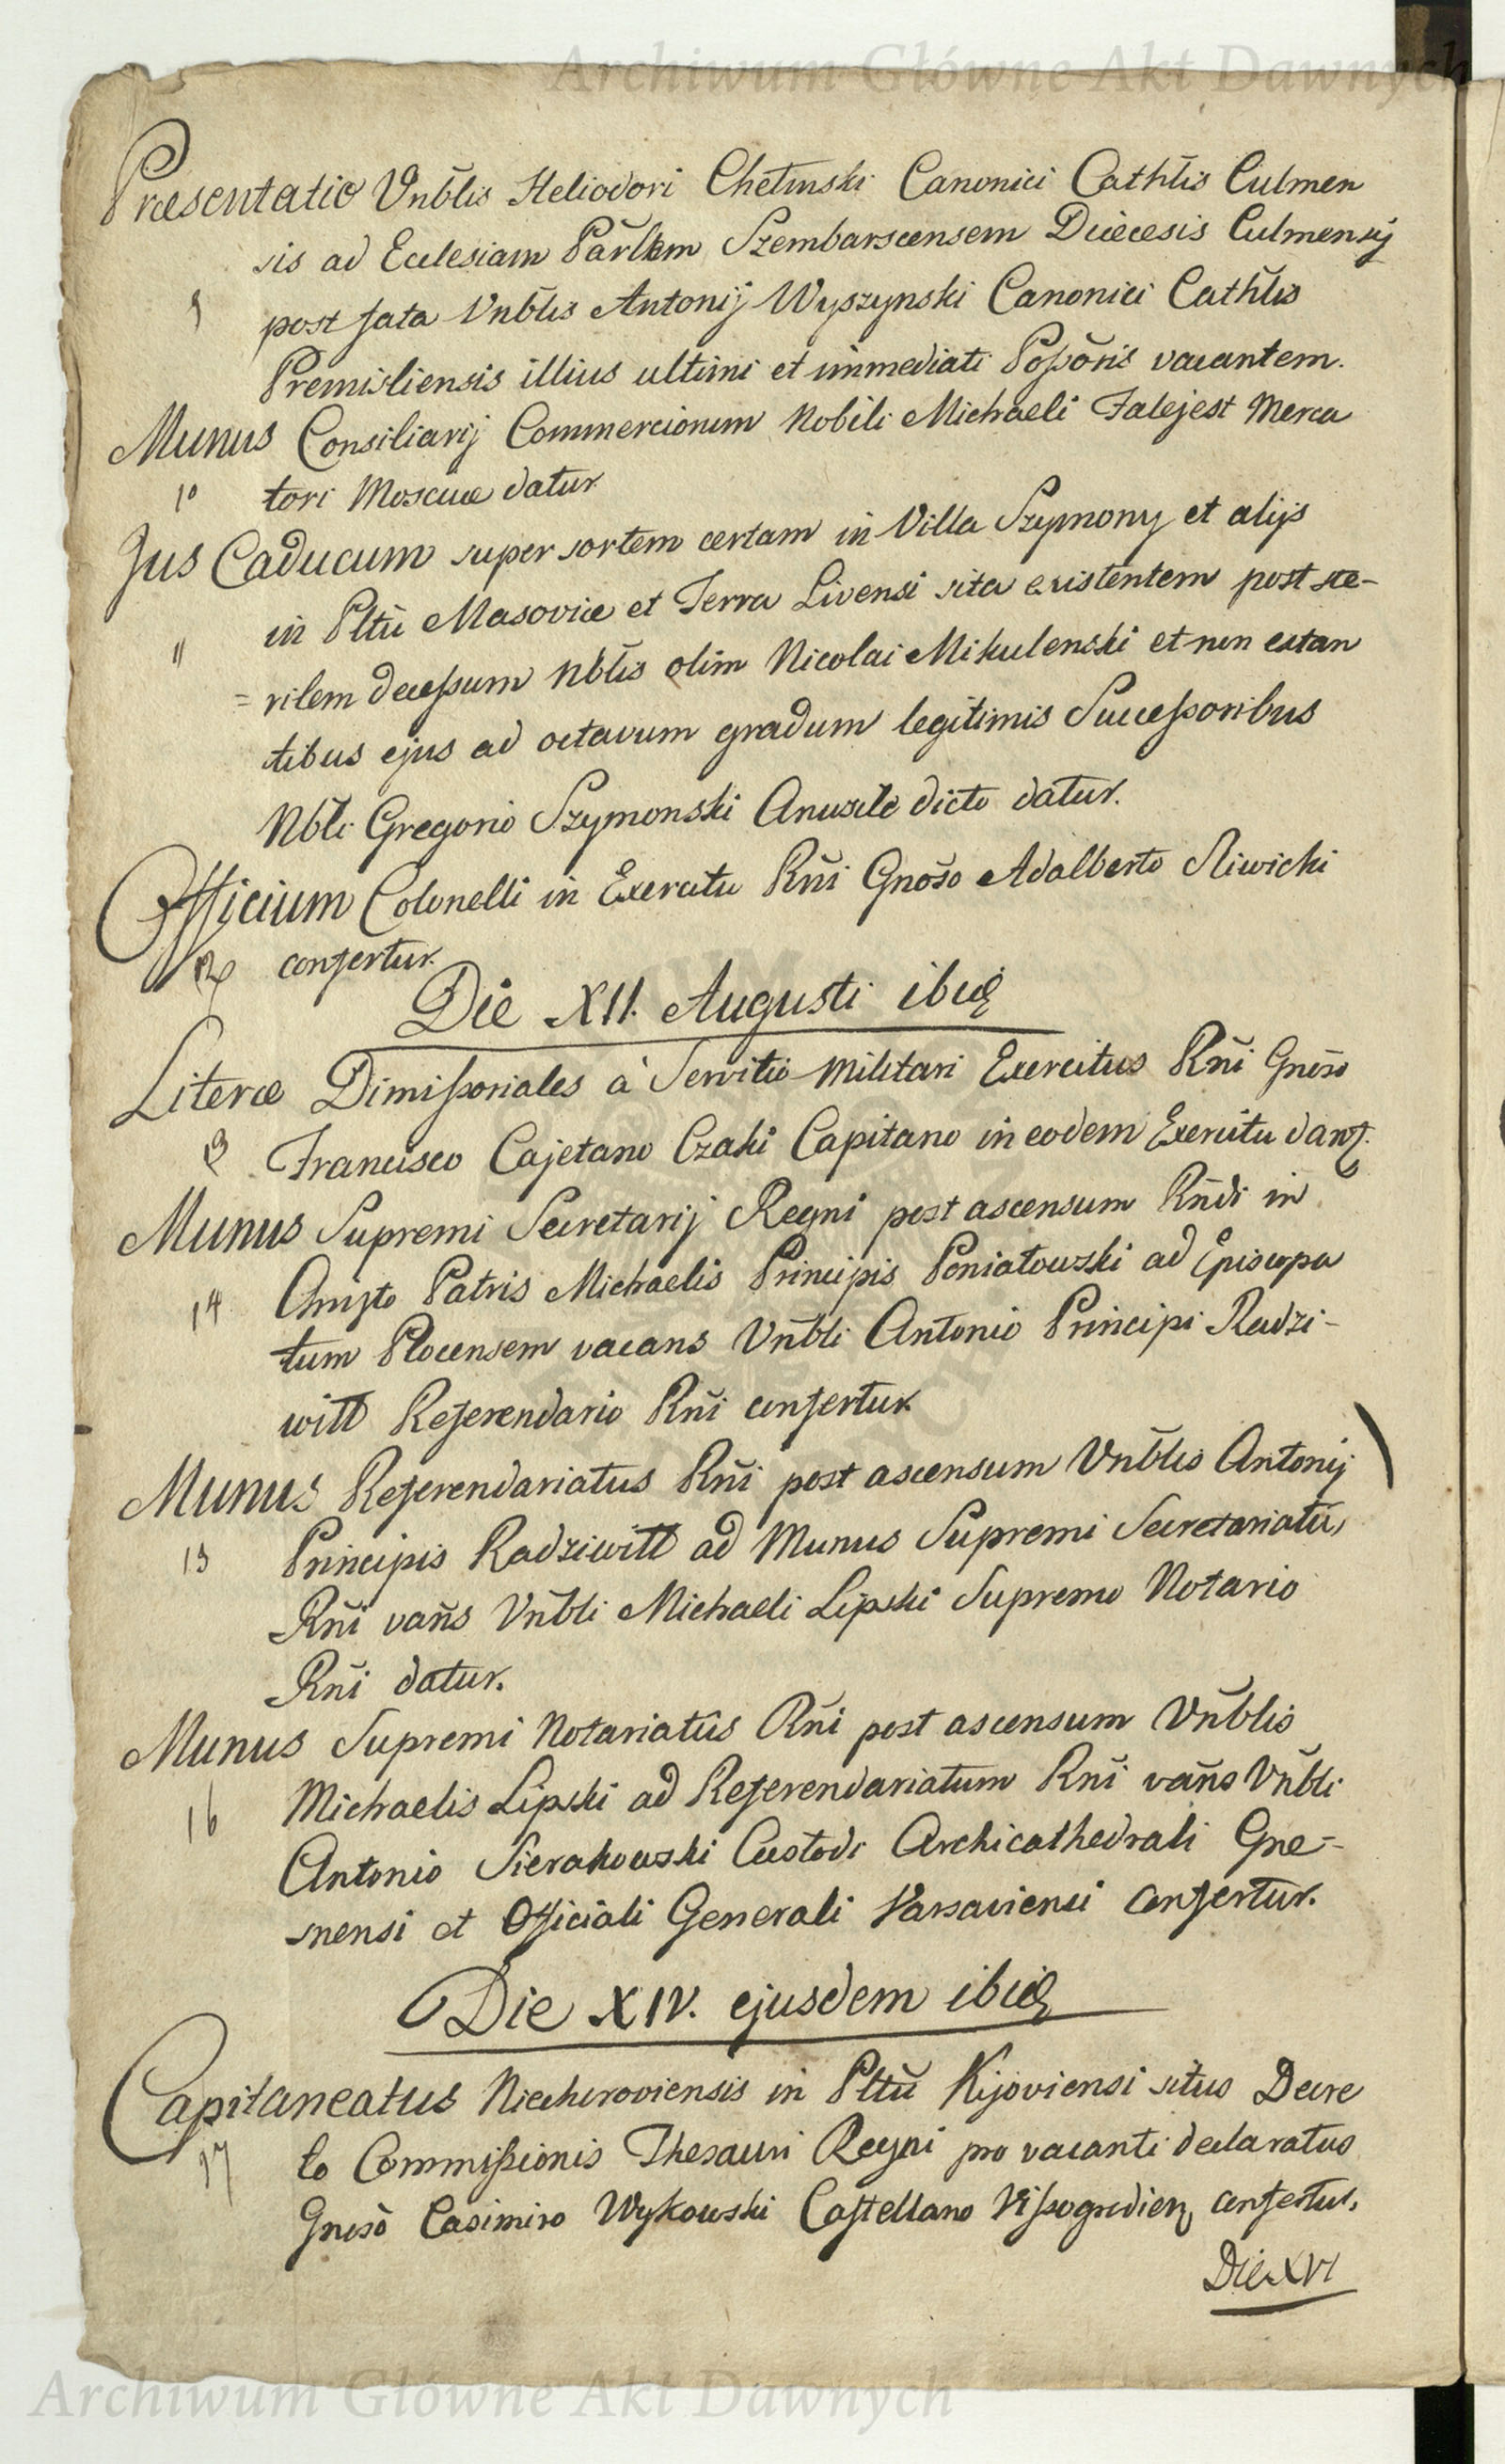 Archiwum Główne Akt Dawnych
Præsentatio Vnb̃lis Heliodori Chełmski Canonici Cathl̃is Culmen
sis ad Ecclesiam Par̃lem Szembarscensem Diæcesis Culmensij
9 post fata Vnb̃lis Antonij Wyszynski Canonici Cathl̃is
Premisliensis illius ultimi et immediati Poßor̃is vacantem.
Munus Consiliarij Commerciorum Nobili Michaeli Falejest Merca
10 tori Moscuæ datur
Jus Caducum super sortem certam in Villa Szymony et alijs
in Pltũ Masoviæ et Terra Livensi sita existentem post ste-
11 = rilem deceßum Nb̃lis olim Nicolai Mikulenski et non extan
tibus ejus ad octavum gradum legitimis Succeßoribus
Nb̃li Gregorio Szymonski Anusile dicto datur.
Officium Colonelli in Exercitu Rñi Gnoso Adalberto Sliwicki
12 confertur.
Die XII. Augusti ibid
Literæ Dimißoriales à Servitio Militari Exercitus Rñi Gnõso
13 Francisco Cajetano Czaki Capitano in eodem Exercitu dant.
Munus Supremi Secretarij Regni post ascensum Rñdi in
14 Christo Patris Michaelis Principis Poniatowski ad Episcopa
tum Plocensem vacans Vnb̃li Antonio Principi Radzi-
wiłł Referendario Rñi confertur
Munus Referendariatus Rñi post ascensum Vnb̃lis Antonij
15 Principis Radziwiłł ad Munus Supremi Secretariatũ,
Rñi vañs Vnb̃li Michaeli Lipski Supremo Notario
Rñi datur.
Munus Supremi Notariatûs Rñi post ascensum Vnb̃lis
16 Michaelis Lipski ad Referendariatum Rñi vañs Vnb̃li
Antonio Sierakowski Custodi Archicathedrali Gne-
snensi et Officiali Generali Varsaviensi confertur.
Die XIV. ejusdem ibid
Capitaneatus Niechvroviensis in Pltũ Kijoviensi situs Decre
17 to Commißionis Thesauri Regni pro vacanti declaratus
Gnoso Casimiro Wykowski Castellano Vißogredien confertur,
Die XVI
Archiwum Główne Akt Dawnych